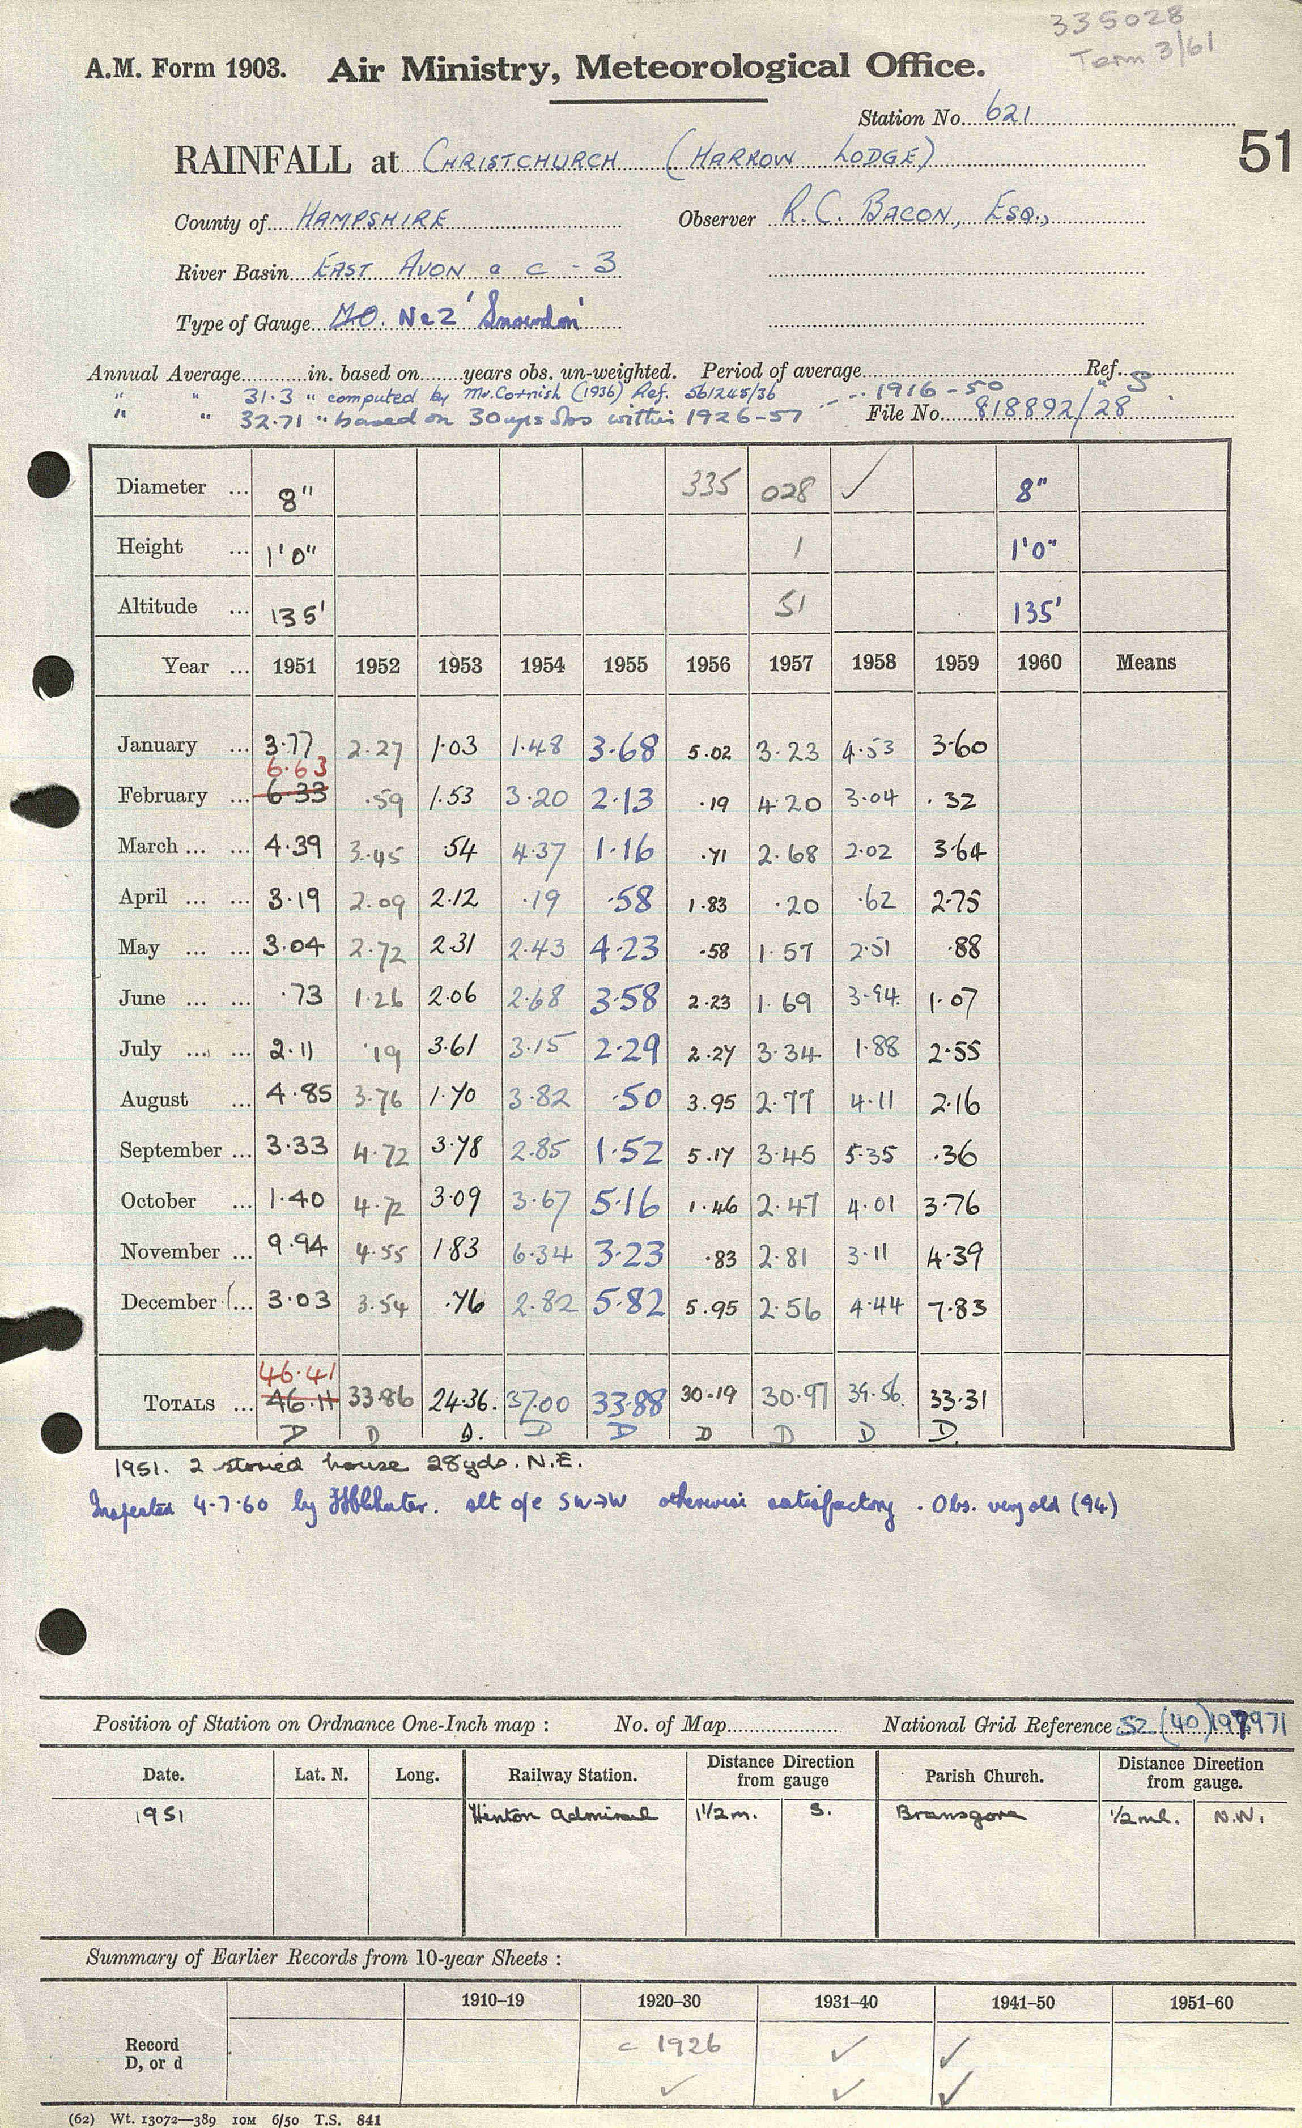 335028
Term 3/61
A.M. Form 1903. Air Ministry, Meteorological Office.
Station No. 621
51
RAINFALL at CHRISTCHURCH (HARROW LODGE)
County of HAMPSHIRE Observer R. C. BACON, ESQ.,
River Basin EAST AVON a c - 3
Type of Gauge M.O. No 2 'Snowdon'
Annual Average in. based on years obs. un-weighted. Period of average Ref. S
" " 31.3 " computed by Mr. Cornish (1936) Ref. 561245/36 1916-50 "
" " 32.71 " based on 30 yrs obs within 1926-57 File No. 818892/28
Diameter ... 8" 335 028 ✓ 8"
Height ... 1'0" 1 1'0"
Altitude ... 135' 51 135'
Year ... 1951 1952 1953 1954 1955 1956 1957 1958 1959 1960 Means
January ... 3.77 2.27 1.03 1.48 3.68 5.02 3.23 4.53 3.60
6.63
February ... 6.33 .59 1.53 3.20 2.13 .19 4.20 3.04 .32
March ... ... 4.39 3.45 .54 4.37 1.16 .71 2.68 2.02 3.64
April ... ... 3.19 2.09 2.12 .19 .58 1.83 .20 .62 2.75
May ... ... 3.04 2.72 2.31 2.43 4.23 .58 1.57 2.51 .88
June ... ... .73 1.26 2.06 2.68 3.58 2.23 1.69 3.94 1.07
July ... ... 2.11 .19 3.61 3.15 2.29 2.27 3.34 1.88 2.55
August ... 4.85 3.76 1.70 3.82 .50 3.95 2.77 4.11 2.16
September ... 3.33 4.72 3.78 2.85 1.52 5.17 3.45 5.35 .36
October ... 1.40 4.72 3.09 3.67 5.16 1.46 2.47 4.01 3.76
November ... 9.94 4.55 1.83 6.34 3.23 .83 2.81 3.11 4.39
December ... 3.03 3.54 .76 2.82 5.82 5.95 2.56 4.44 7.83
46.41
TOTALS ... 46.11 33.86 24.36. 37.00 33.88 30.19 30.97 39.56. 33.31
D D D. D D D D D D.
1951. 2 storied house 28yds. N.E.
Inspected 4.7.60 by alt o/e SW→W otherwise satisfactory. Obs. very old (94)
Position of Station on Ordnance One-Inch map : No. of Map National Grid Reference SZ (40) 197971
Date. Lat. N. Long. Railway Station. Distance from gauge Direction Parish Church. Distance from gauge. Direction
1951 Hinton Admiral 1½m. S. Bransgore ½ml. N.W.
Summary of Earlier Records from 10-year Sheets :
1910-19 1920-30 1931-40 1941-50 1951-60
Record D, or d c 1926 ✓ ✓
✓ ✓ ✓
(62) Wt. 13072—389 10M 6/50 T.S. 841